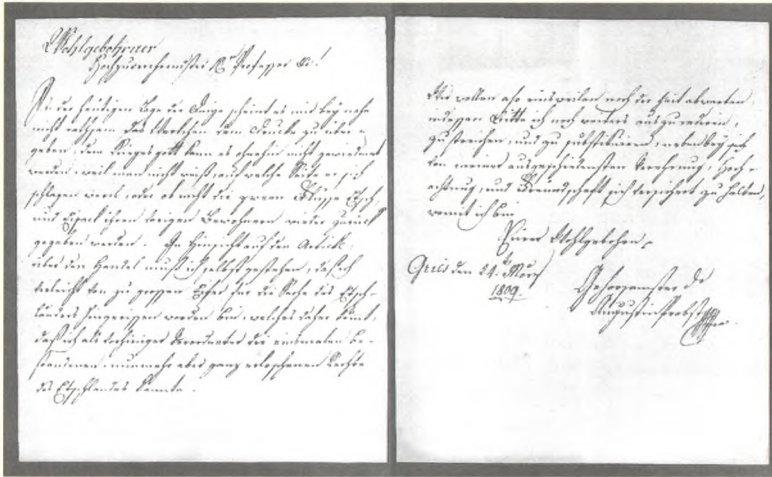 Wohlgebohrner
Hochzuverehrender Hr Professor
Bei der heutigen Lage der Dinge scheint es mir bey nahe
nicht rathsam das Werkchen dem Drucke zu über-
geben; dem Kriegsgott kann es ohnehin nicht gewiedmet
werden, weil man nicht weiß, auf welche Seite er sich
schlagen wird, oder ob nicht die zween Flüsse Etsch,
und Eysack ihren vorigen Bewohnern wieder zurück
gegeben werden. In Hinsicht auf den Artikel
über den Handel muß ich selbst gestehen, daß ich
vieleicht von zu grossem Eifer für die Sache des Etsch-
landes hingerissen worden bin, welches daher kömt,
daß ich als
standenen, nunmehr aber ganz erloschenen Rechte
des Etschlandes kannte.
Wir wollen also einsweilen noch die Zeit abwarten,
indessen bitte ich noch weiters auszubessern,
zu streichen, und zu substituieren, nebenbey sich
von meiner ausgezeichnetsten Verehrung, Hoch-
achtung, und Freundschaft sich versichert zu halten,
womit ich bin
Euer Wohlgebohrn
Gries den 24t März
1809
Gehorsamster Dr
Augustin Probst